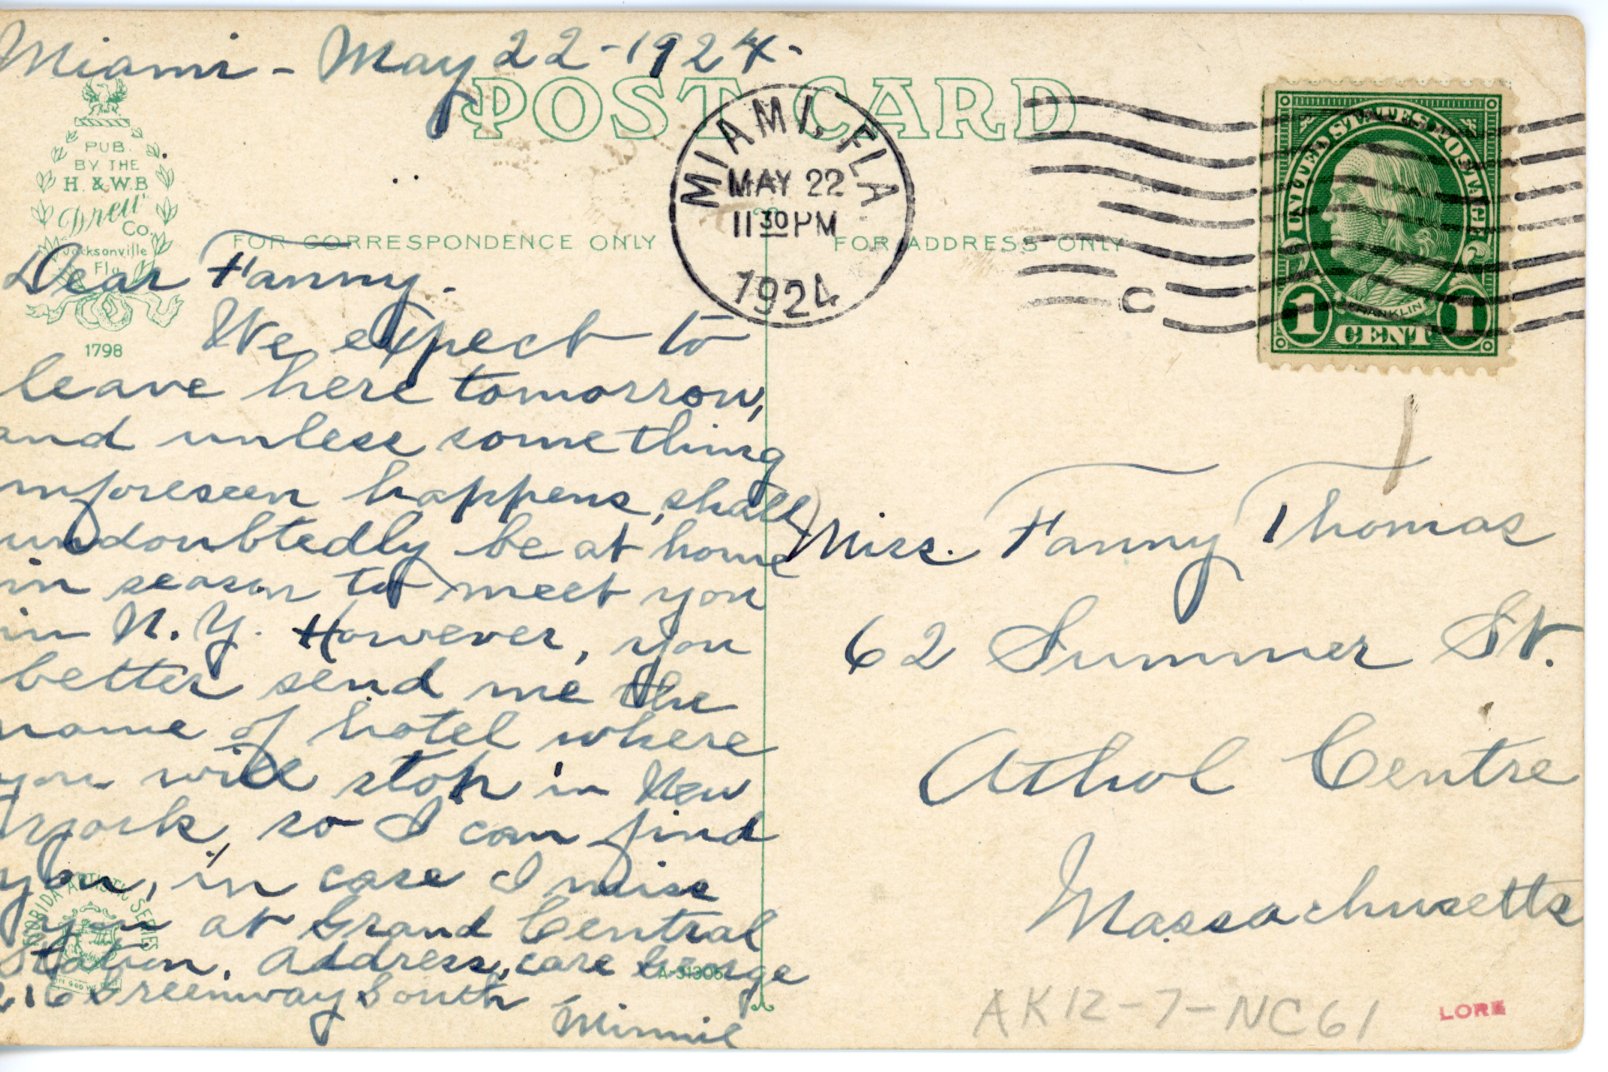 Miami - May 22 - 1924 -
POST CARD
PUB.
BY THE
H. & W.B.
Drew
Co.
Jacksonville
Fla.
1798
FOR CORRESPONDENCE ONLY
FOR ADDRESS ONLY
MIAMI, FLA.
MAY 22
11 30 PM
1924
C
UNITED STATES POSTAGE
FRANKLIN
1 CENT 1
Dear Fanny.
We expect to
leave here tomorrow,
and unless something
unforeseen happens, shall
undoubtedly be at home
in season to meet you
in N.Y. However, you
better send me the
name of hotel where
you will stop in New
York, so I can find
you, in case I miss
you at Grand Central
Station. Address, care George
216 Greenway South
Minnie
Miss. Fanny Thomas
62 Summer St.
Athol Centre
Massachusetts
FLORIDA ARTISTIC SERIES
A-31305
AK12-7-NC61
LORE